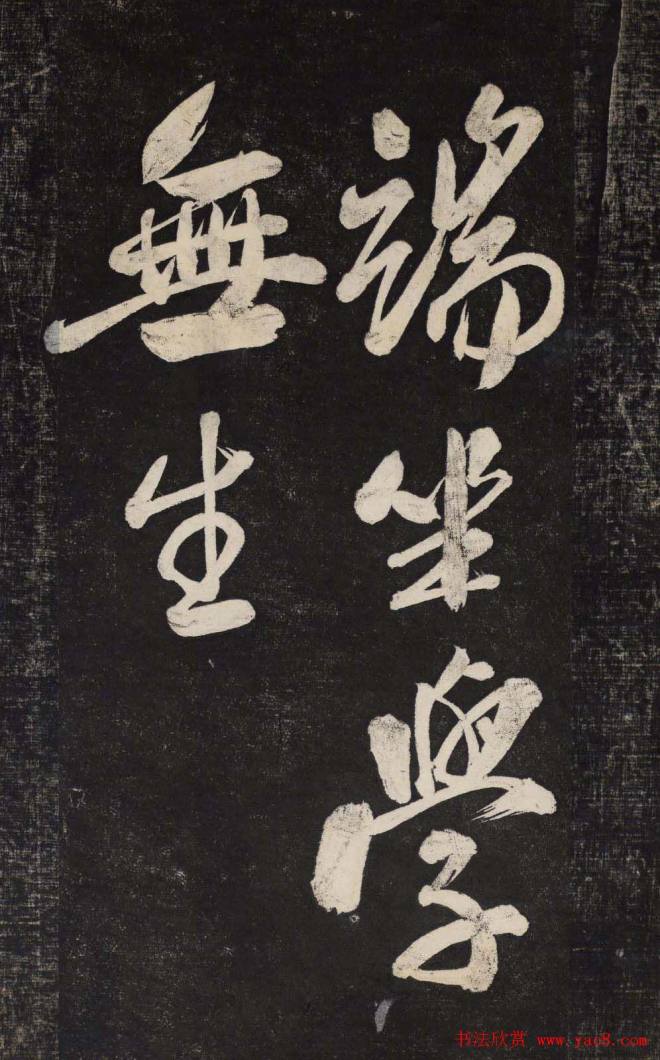 端坐學
無生
书法欣赏 www.yac8.com